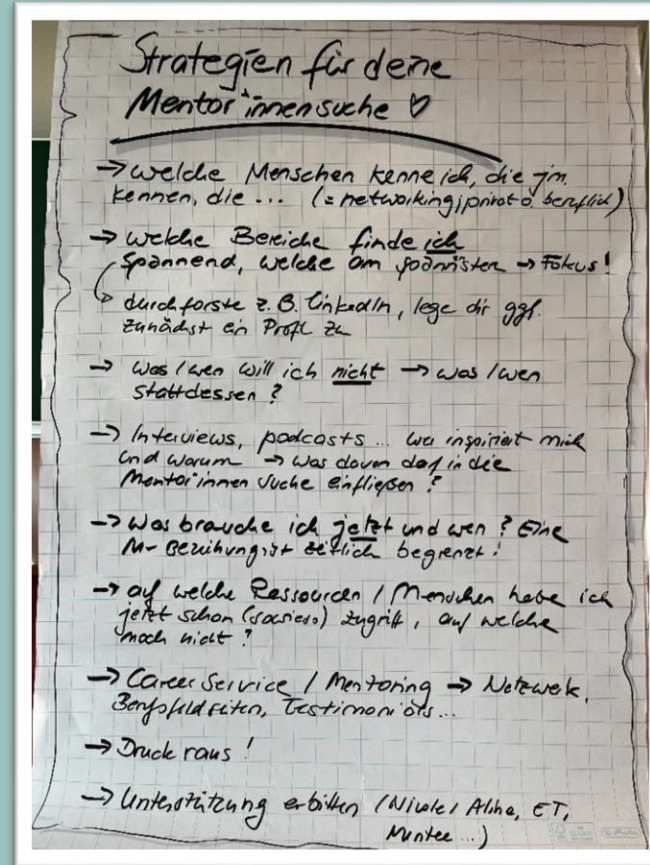 Strategien für deine
Mentor*innensuche ♡
→ welche Menschen kenne ich, die jm.
kennen, die ... (= networking, privat o. beruflich)
→ welche Bereiche finde ich
spannend, welche am spannsten → Fokus!
↳ durchforste z. B. LinkedIn, lege dir ggf.
zunächst ein Profil zu
→ was / wen will ich nicht → was / wen
stattdessen ?
→ Interviews, podcasts ... wer inspiriert mich
und warum → was davon darf in die
Mentor*innen suche einfließen ?
→ Was brauche ich jetzt und wen ? Eine
M-Beziehung ist zeitlich begrenzt !
→ auf welche Ressourcen / Menschen habe ich
jetzt schon (sowieso) Zugriff, auf welche
noch nicht ?
→ Career Service / Mentoring → Netzwerk,
Testimonials ...
→ Druck raus !
→ Unterstützung erbitten (ET,
Mentee ...)